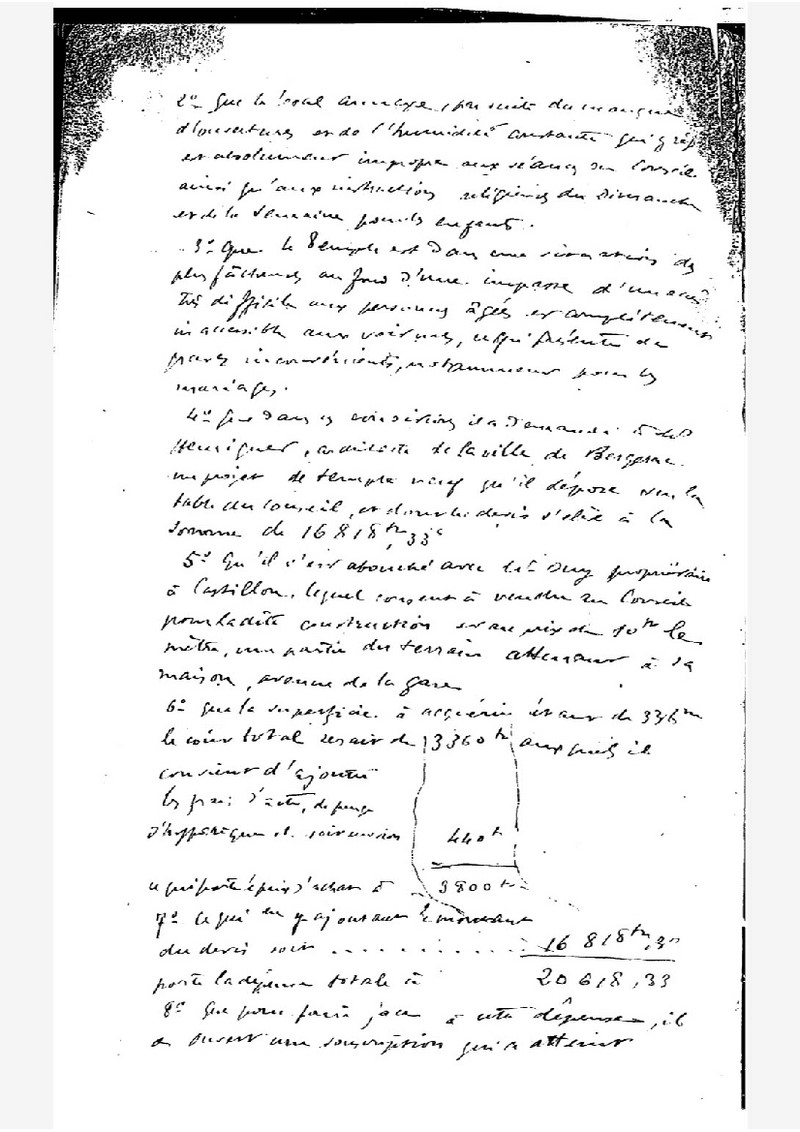 2º Que le local annexe, par suite du manque
d'ouvertures et de l'humidité constante qui y
est absolument impropre aux séances du Conseil
ainsi qu'aux instructions religieuses du Dimanche
et de la Semaine pour les enfants.
3º Que le Temple est dans une situation des
plus fâcheuses au fond d'une impasse d'un accès
très difficile aux personnes âgées et complètement
inaccessible aux voitures, ce qui présente de
graves inconvénients, notamment pour les
mariages.
4º Que dans ces conditions il a demandé à Mr
architecte de la ville de Bergerac
un projet de temple neuf qu'il dépose sur la
table du Conseil, et dont le devis s'élève à la
somme de 16818 frs,33c
5º Qu'il s'est abouché avec Mr propriétaire
à Castillon, lequel consent à vendre au Conseil
pour ladite construction et au prix de 10 frs le
mètre, une partie du terrain attenant à sa
maison, avenue de la gare
6º Que la superficie à acquérir étant de 336 m
le coût total serait de 3360 frs auxquels il
convient d'ajouter
les frais d'acte, de purge
d'hypothèque et 440 f
ce qui porte le prix d'achat à 3800 frs
7º Ce qui en y ajoutant le montant
du devis soit .......... 16 818 frs,33
porte la dépense totale à 20 618,33
8º Que pour faire face à cette dépense, il
a ouvert une souscription qui a atteint